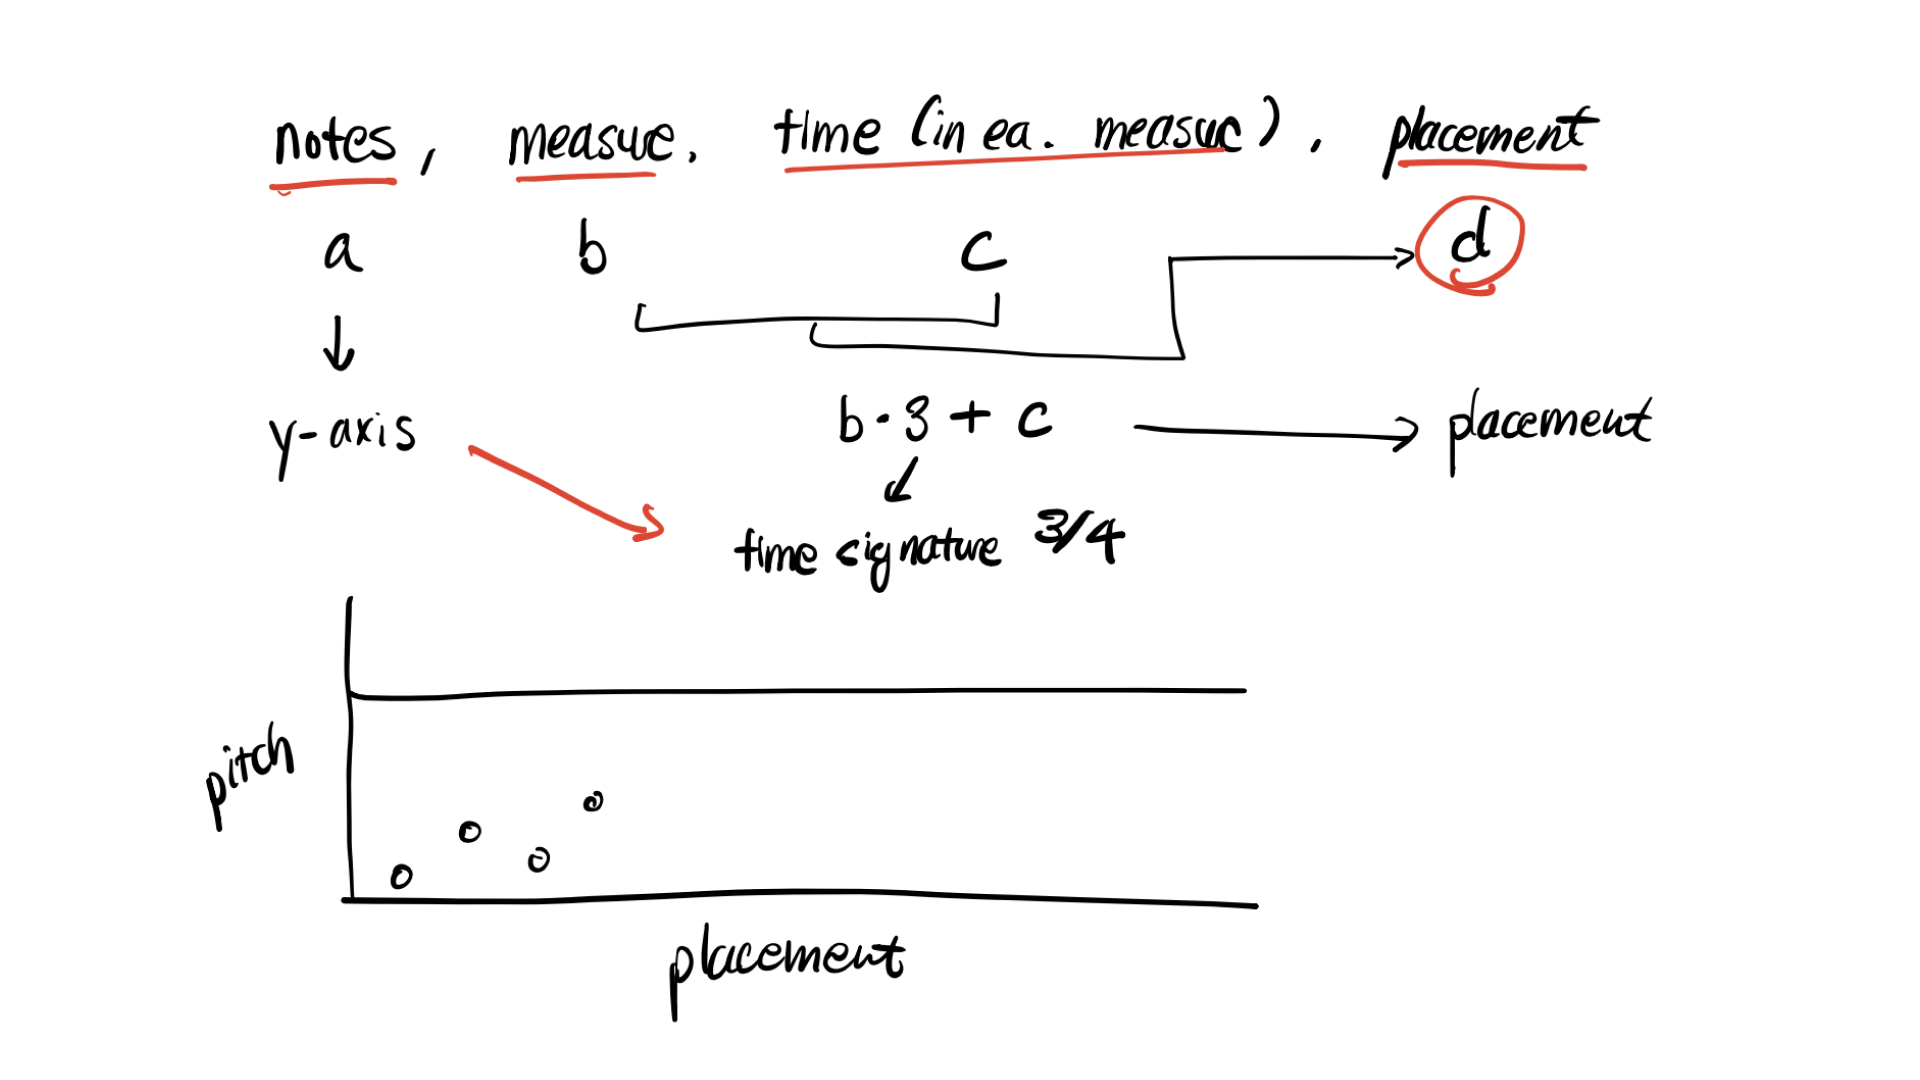 notes, measure, time (in ea. measure), placement
a b c d
y-axis b · 3 + c placement
time signature 3/4
pitch
placement